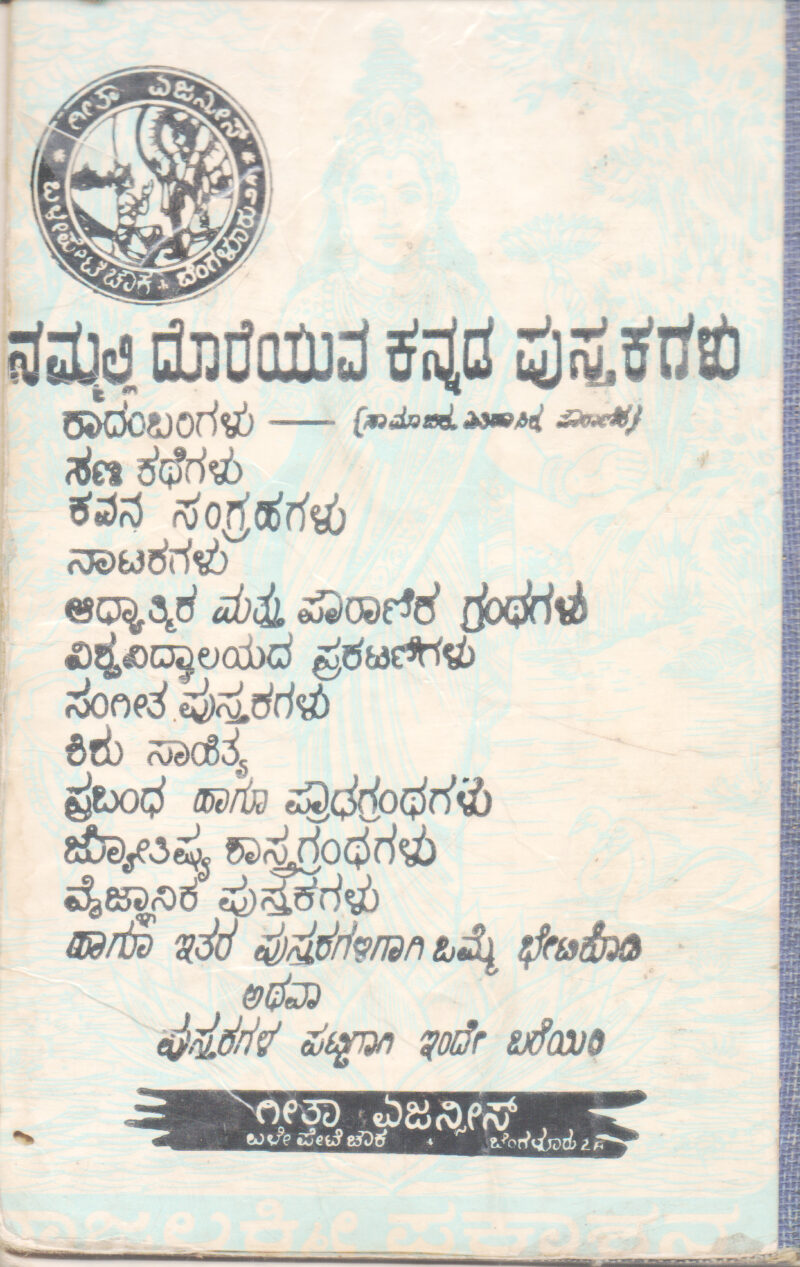 ಗೀತಾ ಏಜನ್ಸೀಸ್
ಬಳೇಪೇಟೆ ಚೌಕ ಬೆಂಗಳೂರು
ನಮ್ಮಲ್ಲಿ ದೊರೆಯುವ ಕನ್ನಡ ಪುಸ್ತಕಗಳು
ಕಾದಂಬರಿಗಳು — (ಸಾಮಾಜಿಕ, ಐತಿಹಾಸಿಕ, ಪೌರಾಣಿಕ)
ಸಣ್ಣ ಕಥೆಗಳು
ಕವನ ಸಂಗ್ರಹಗಳು
ನಾಟಕಗಳು
ಆಧ್ಯಾತ್ಮಿಕ ಮತ್ತು ಪೌರಾಣಿಕ ಗ್ರಂಥಗಳು
ವಿಶ್ವವಿದ್ಯಾಲಯದ ಪ್ರಕಟಣೆಗಳು
ಸಂಗೀತ ಪುಸ್ತಕಗಳು
ಕಿರು ಸಾಹಿತ್ಯ
ಪ್ರಬಂಧ ಹಾಗೂ ಪ್ರೌಢಗ್ರಂಥಗಳು
ಜ್ಯೋತಿಷ್ಯ ಶಾಸ್ತ್ರಗ್ರಂಥಗಳು
ವೈಜ್ಞಾನಿಕ ಪುಸ್ತಕಗಳು
ಹಾಗೂ ಇತರ ಪುಸ್ತಕಗಳಿಗಾಗಿ ಒಮ್ಮೆ ಭೇಟಿಕೊಡಿ
ಅಥವಾ
ಪುಸ್ತಕಗಳ ಪಟ್ಟಿಗಾಗಿ ಇಂದೇ ಬರೆಯಿರಿ
ಗೀತಾ ಏಜನ್ಸೀಸ್
ಬಳೇಪೇಟೆ ಚೌಕ ಬೆಂಗಳೂರು
ರಾಜಲಕ್ಷ್ಮೀ ಪ್ರಕಾಶನ